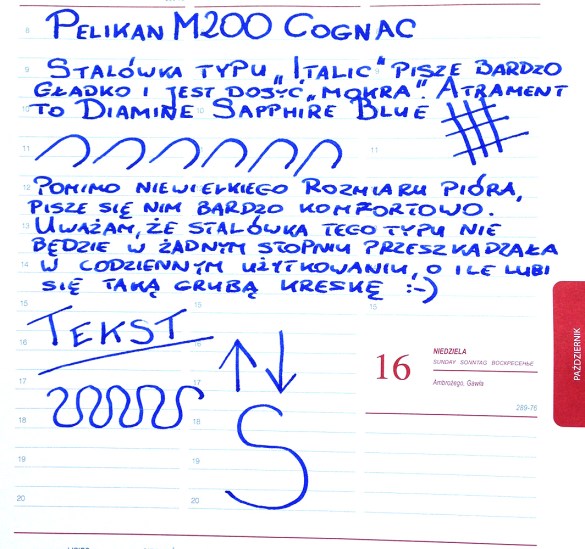 8
PELIKAN M200 COGNAC
9
STALÓWKA TYPU „ITALIC" PISZE BARDZO
GŁADKO I JEST DOSYĆ „MOKRA". ATRAMENT
10
TO DIAMINE SAPPHIRE BLUE
11
11
12
POMIMO NIEWIELKIEGO ROZMIARU PIÓRA,
PISZE SIĘ NIM BARDZO KOMFORTOWO.
13
UWAŻAM, ŻE STALÓWKA TEGO TYPU NIE
BĘDZIE W ŻADNYM STOPNIU PRZESZKADZAŁA
14
W CODZIENNYM UŻYTKOWANIU, O ILE LUBI
SIĘ TAKĄ GRUBĄ KRESKĘ :-)
15
15
15
TEKST
16
16
17
17
18
18
19
19
20
20
16
NIEDZIELA
SUNDAY SONNTAG ВОСКРЕСЕНЬЕ
Ambrożego, Gawła
289-76
PAŹDZIERNIK